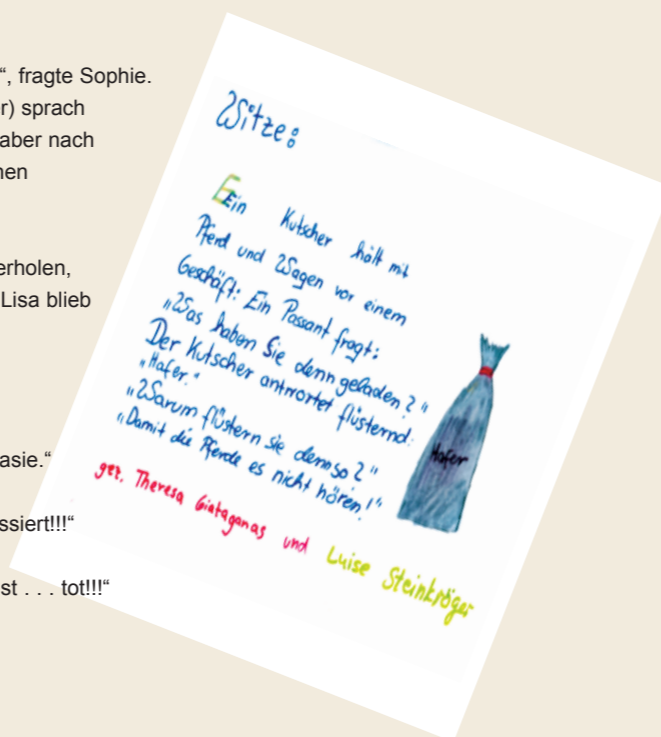 “, fragte Sophie.
r) sprach
aber nach
nen
erholen,
Lisa blieb
asie.“
ssiert!!!“
st . . . tot!!!“
Witze:
Ein Kutscher hält mit
Pferd und Wagen vor einem
Geschäft: Ein Passant fragt:
„Was haben Sie denn geladen?“
Der Kutscher antwortet flüsternd:
„Hafer.“
„Warum flüstern sie denn so?“
„Damit die Pferde es nicht hören!“
Hafer
gez. Theresa Giataganas und Luise Steinkröger